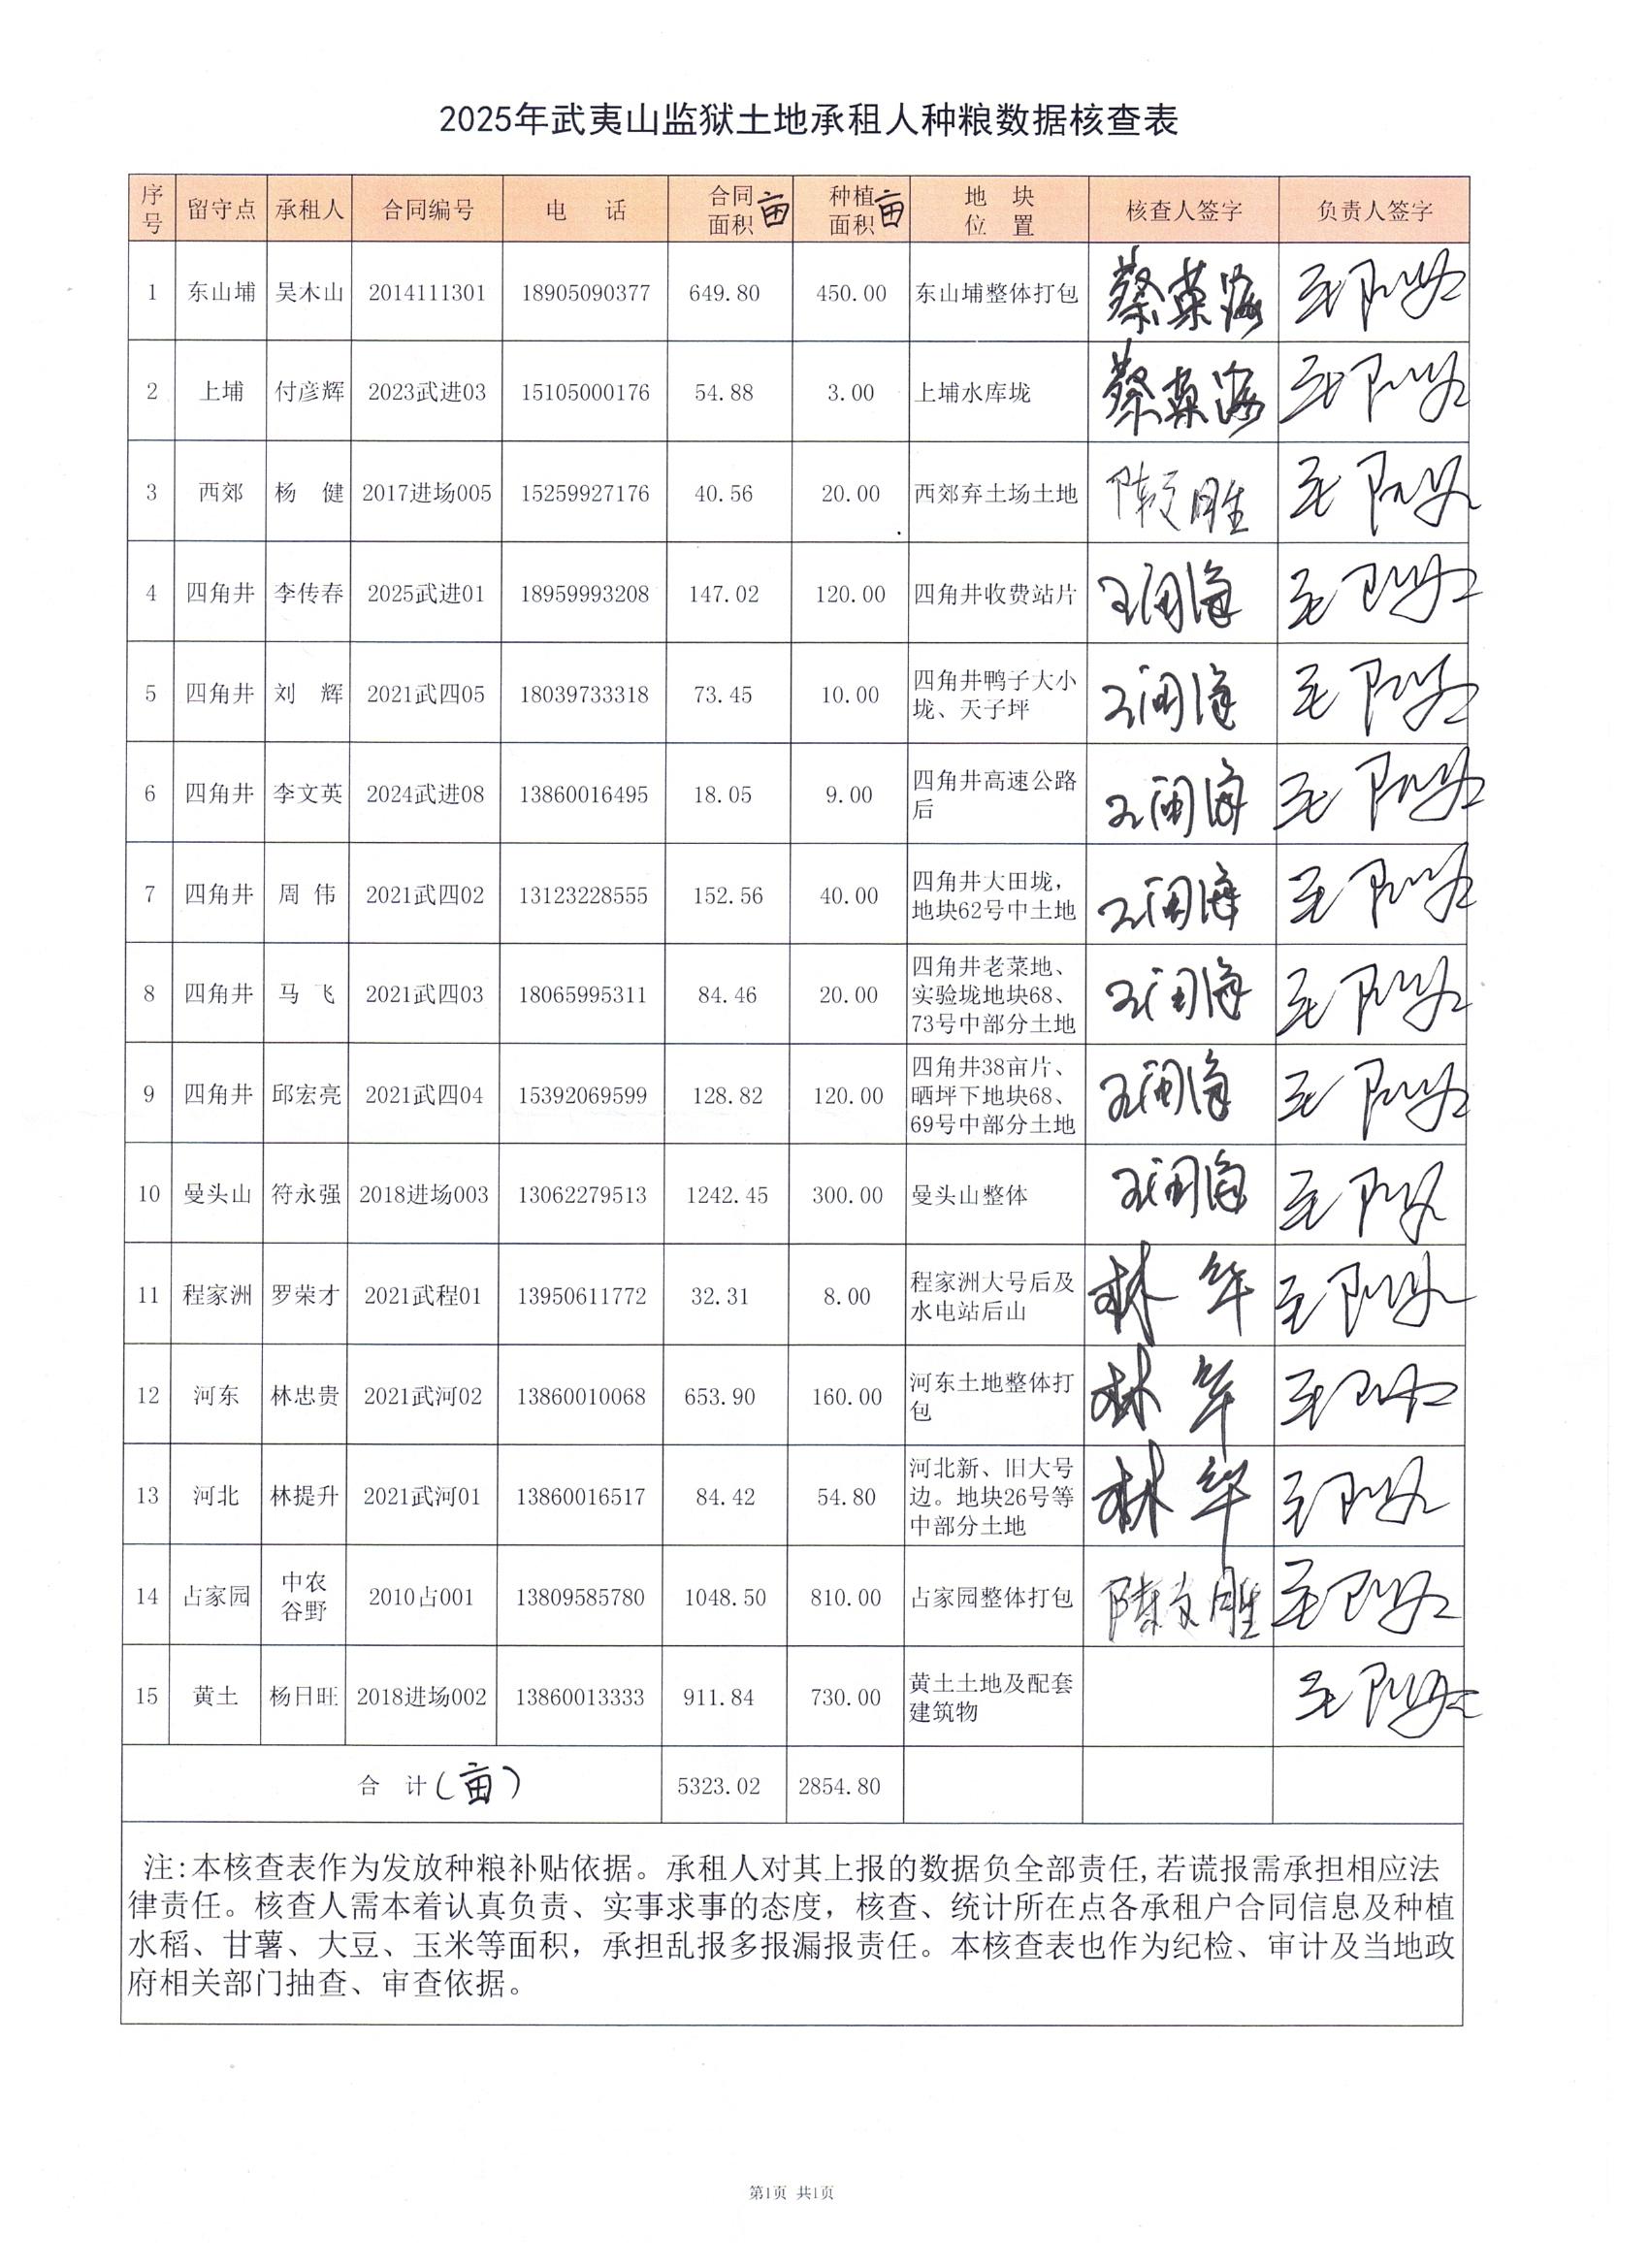 2025年武夷山监狱土地承租人种粮数据核查表
序号 留守点 承租人 合同编号 电 话 合同面积亩 种植面积亩 地 块 位 置 核查人签字 负责人签字
1 东山埔 吴木山 2014111301 18905090377 649.80 450.00 东山埔整体打包
2 上埔 付彦辉 2023武进03 15105000176 54.88 3.00 上埔水库垅
3 西郊 杨 健 2017进场005 15259927176 40.56 20.00 西郊弃土场土地
4 四角井 李传春 2025武进01 18959993208 147.02 120.00 四角井收费站片
5 四角井 刘 辉 2021武四05 18039733318 73.45 10.00 四角井鸭子大小垅、天子坪
6 四角井 李文英 2024武进08 13860016495 18.05 9.00 四角井高速公路后
7 四角井 周 伟 2021武四02 13123228555 152.56 40.00 四角井大田垅，地块62号中土地
8 四角井 马 飞 2021武四03 18065995311 84.46 20.00 四角井老菜地、实验垅地块68、73号中部分土地
9 四角井 邱宏亮 2021武四04 15392069599 128.82 120.00 四角井38亩片、晒坪下地块68、69号中部分土地
10 曼头山 符永强 2018进场003 13062279513 1242.45 300.00 曼头山整体
11 程家洲 罗荣才 2021武程01 13950611772 32.31 8.00 程家洲大号后及水电站后山 林华
12 河东 林忠贵 2021武河02 13860010068 653.90 160.00 河东土地整体打包 林华
13 河北 林提升 2021武河01 13860016517 84.42 54.80 河北新、旧大号边。地块26号等中部分土地 林华
14 占家园 中农谷野 2010占001 13809585780 1048.50 810.00 占家园整体打包
15 黄土 杨日旺 2018进场002 13860013333 911.84 730.00 黄土土地及配套建筑物
合 计(亩) 5323.02 2854.80
注:本核查表作为发放种粮补贴依据。承租人对其上报的数据负全部责任,若谎报需承担相应法
律责任。核查人需本着认真负责、实事求事的态度，核查、统计所在点各承租户合同信息及种植
水稻、甘薯、大豆、玉米等面积，承担乱报多报漏报责任。本核查表也作为纪检、审计及当地政
府相关部门抽查、审查依据。
第1页 共1页